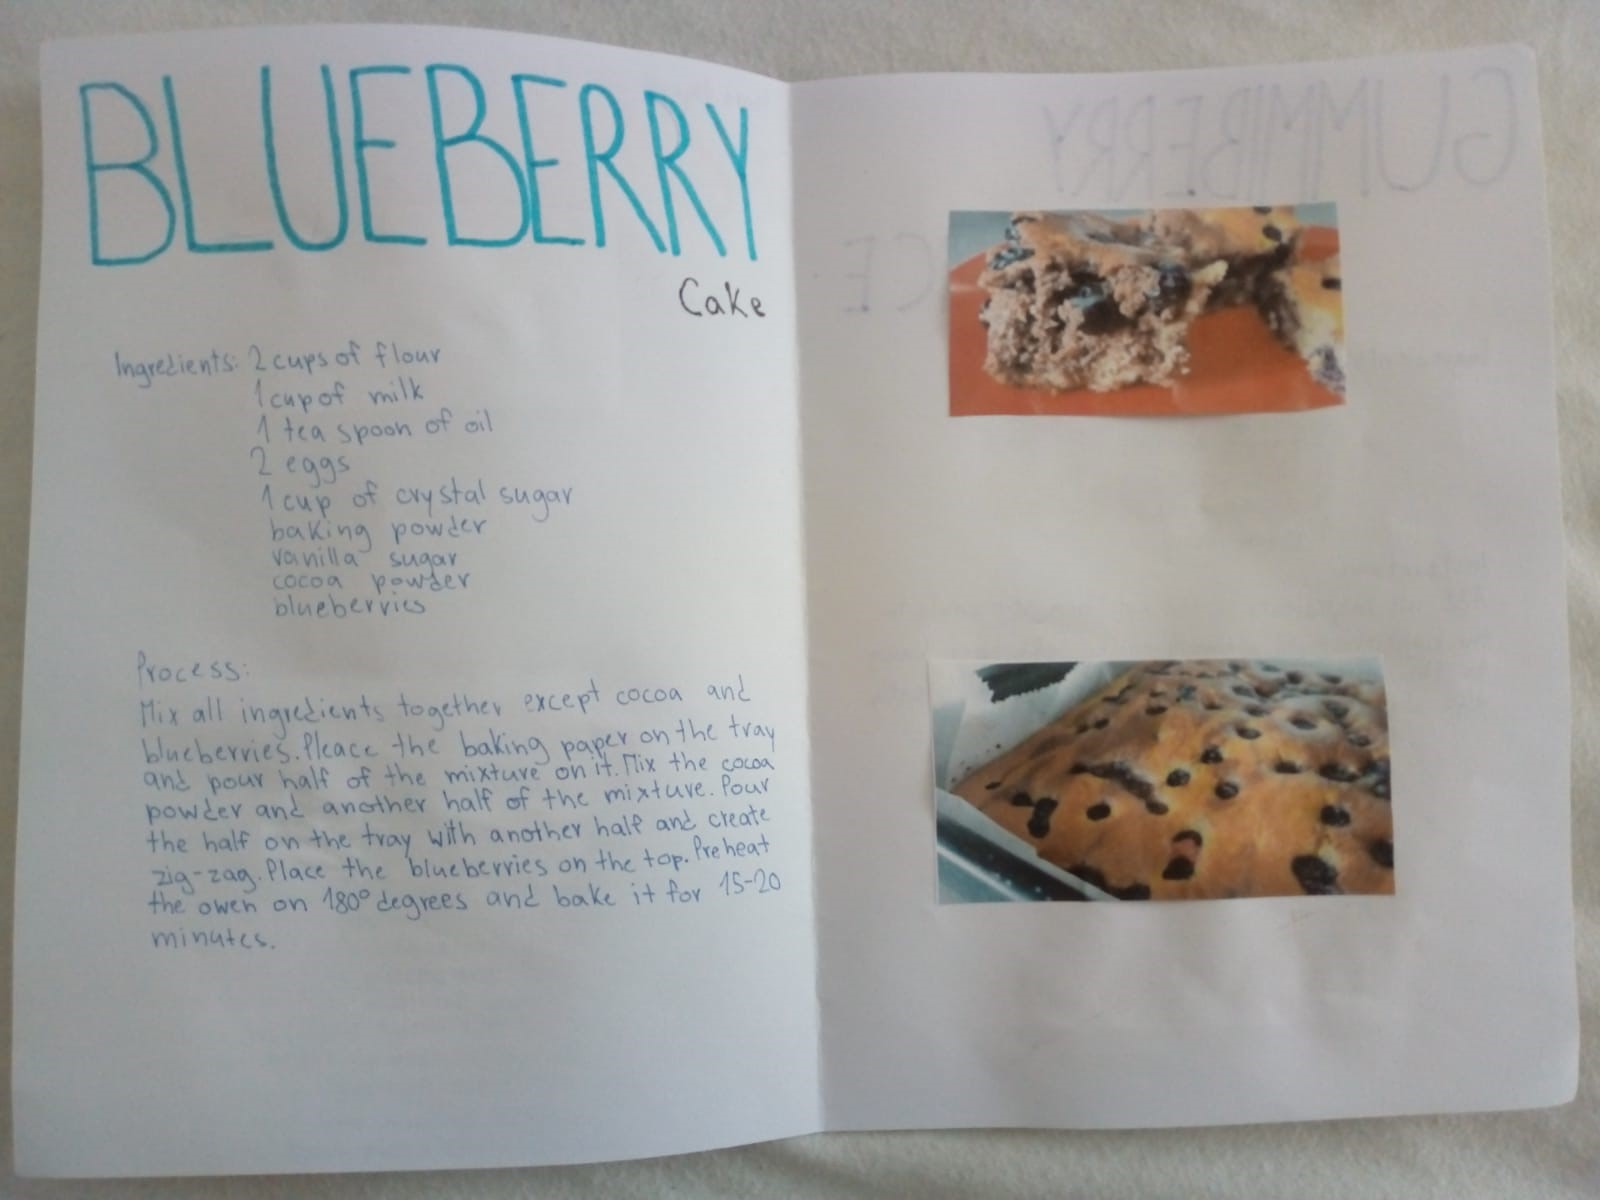 BLUEBERRY
Cake
Ingredients: 2 cups of flour
1 cup of milk
1 tea spoon of oil
2 eggs
1 cup of crystal sugar
baking powder
vanilla sugar
cocoa powder
blueberries
Process:
Mix all ingredients together except cocoa and
blueberries. Pleace the baking paper on the tray
and pour half of the mixture on it. Mix the cocoa
powder and another half of the mixture. Pour
the half on the tray with another half and create
zig-zag. Place the blueberries on the top. Preheat
the owen on 180° degrees and bake it for 15-20
minutes.
GUMMIBERRY